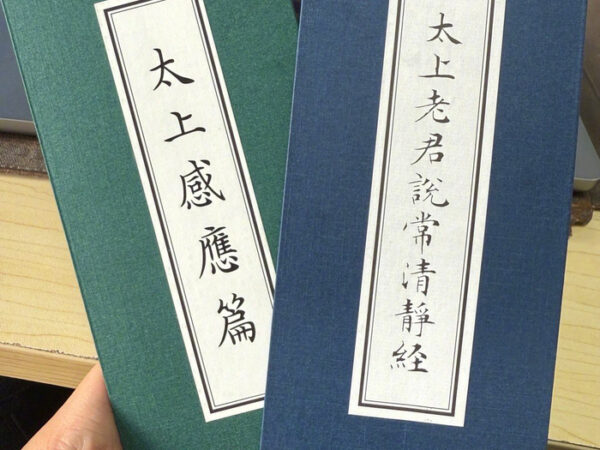 太上感應篇
太上老君說常清靜経